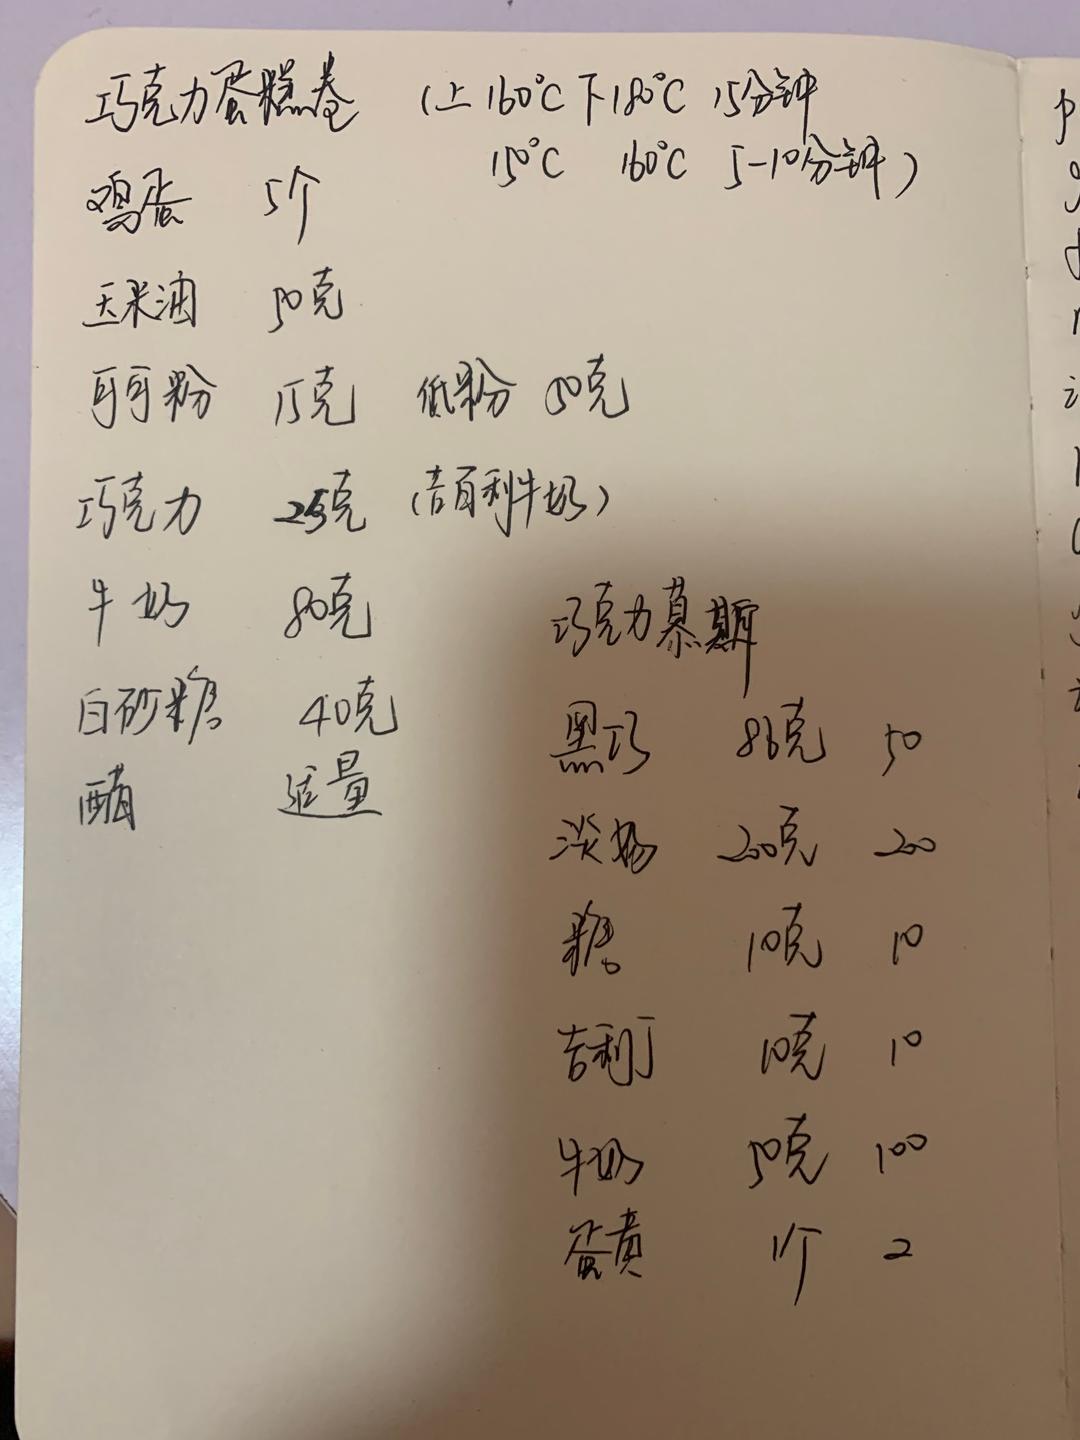 巧克力蛋糕卷 (上160°C 下180°C 15分钟
150°C 160°C 5-10分钟)
鸡蛋 5个
玉米油 50克
可可粉 15克 低粉 50克
巧克力 25克 (吉百利牛奶)
牛奶 80克
白砂糖 40克
醋 适量
巧克力慕斯
黑巧 86克 50
淡奶 200克 200
糖 10克 10
吉利丁 10克 10
牛奶 50克 100
蛋黄 1个 2